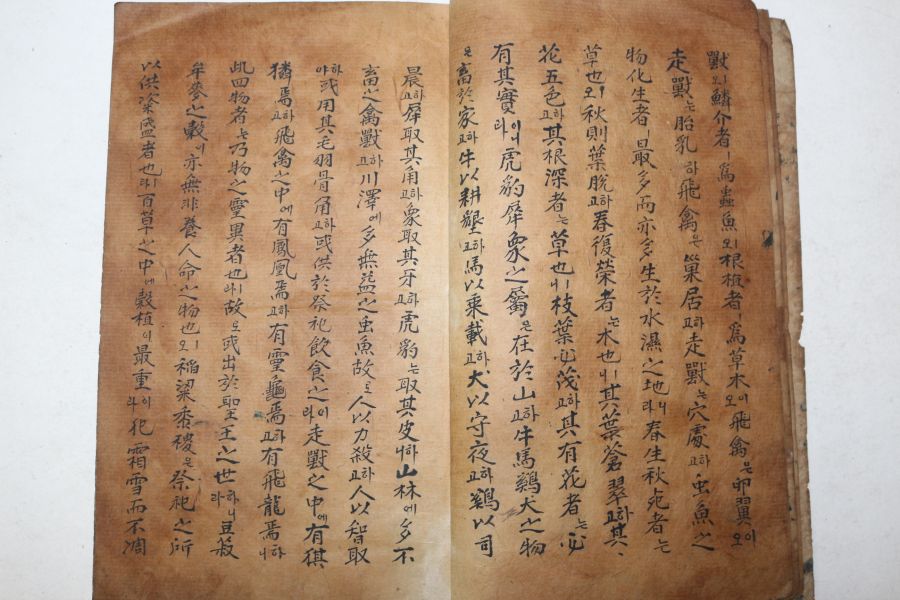 獸오鱗介者ㅣ爲蟲魚오根植者ㅣ爲草木오飛禽은卵翼이오
走獸는胎乳하飛禽은巢居하고走獸는穴處하고虫魚之
物化生者ㅣ最多而亦多生於水濕之地라니春生秋死者는
草也오秋則葉脫하고春復榮者는木也니其葉蒼翠하고其
花五色하고其根深者는草也니枝葉必茂하고其有花者는必
有其實이니라虎豹犀象之屬은在於山하고牛馬鷄犬之物
은畜於家하고牛以耕墾하고馬以乘載하고犬以守夜하고鷄以司
晨하고犀取其角하고象取其牙하고虎豹는取其皮하나山林에多不
畜之禽獸하고川澤에多無益之虫魚故로人以力殺하고人以智取
하야或用其毛羽骨角하고或供於祭祀飮食之이라走獸之中에有猉
獜焉하고飛禽之中에有鳳凰焉하고有靈龜焉하고有飛龍焉하니
此四物者는乃物之靈異者也라故로或出於聖王之世하니라豆菽
牟麥之穀이亦無非養人命之物也오稻粱黍稷은祭祀之所
以供粢盛者也라百草之中에穀植이最重하이라犯霜雪而不凋